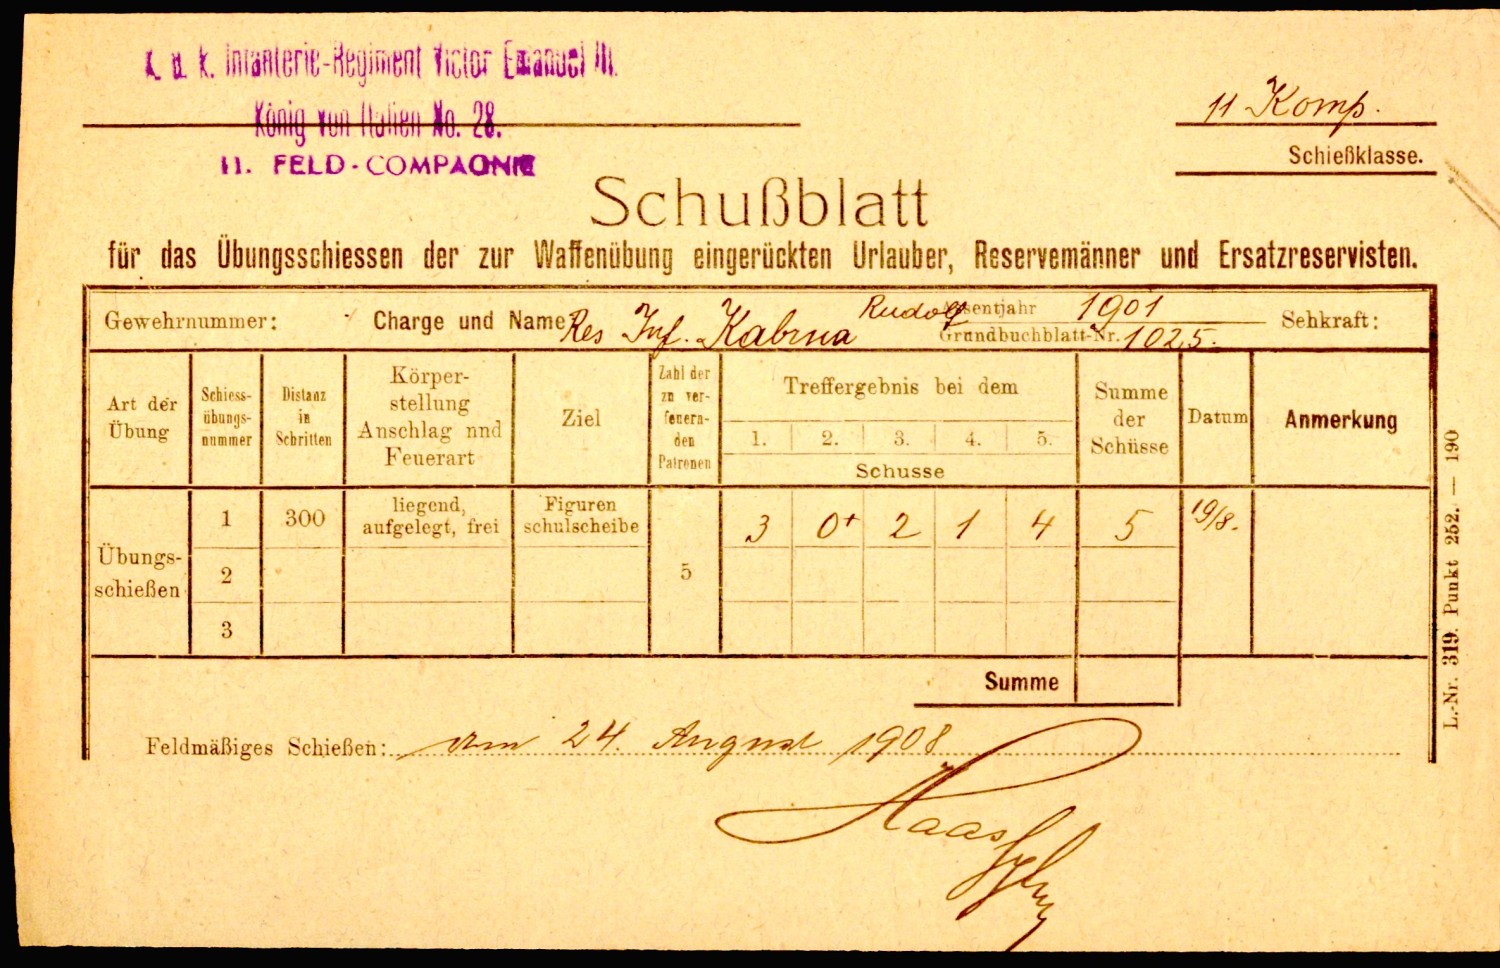 k. u. k. Infanterie-Regiment Victor Emanuel III.
König von Italien No. 28.
11. FELD-COMPAGNIE
11 Komp.
Schießklasse.
Schußblatt
für das Übungsschiessen der zur Waffenübung eingerückten Urlauber, Reservemänner und Ersatzreservisten.
Gewehrnummer: Charge und Name Res Inf. Kabrna Rudolf Assentjahr 1901 Sehkraft:
Grundbuchblatt-Nr. 1025.
Art der Übung
Schiess-übungs-nummer
Distanz in Schritten
Körper-stellung Anschlag nnd Feuerart
Ziel
Zahl der zu ver-feuern-den Patronen
Treffergebnis bei dem
1. 2. 3. 4. 5.
Schusse
Summe der Schüsse
Datum
Anmerkung
Übungs-schießen
1 300 liegend, aufgelegt, frei Figuren schulscheibe 5 3 0+ 2 1 4 5 19/8.
2
3
Summe
Feldmäßiges Schießen: am 24. August 1908
Haas
L.-Nr. 319. Punkt 252. — 190